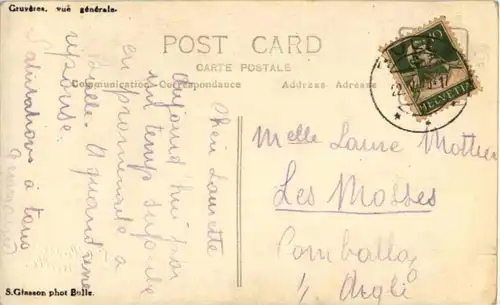 Gruyères, vue générale.
POST CARD
CARTE POSTALE
Communication-Correspondance
Address Adresse
10
HELVETIA
Chère Laurette
Aujourd'hui par
un temps superbe
en promenade à
Bulle. A quand une
réponse.
Salutations à tous
Melle Laure Mottier
Les Mosses
Comballaz
s/ Aigle
S. Glasson phot Bulle.